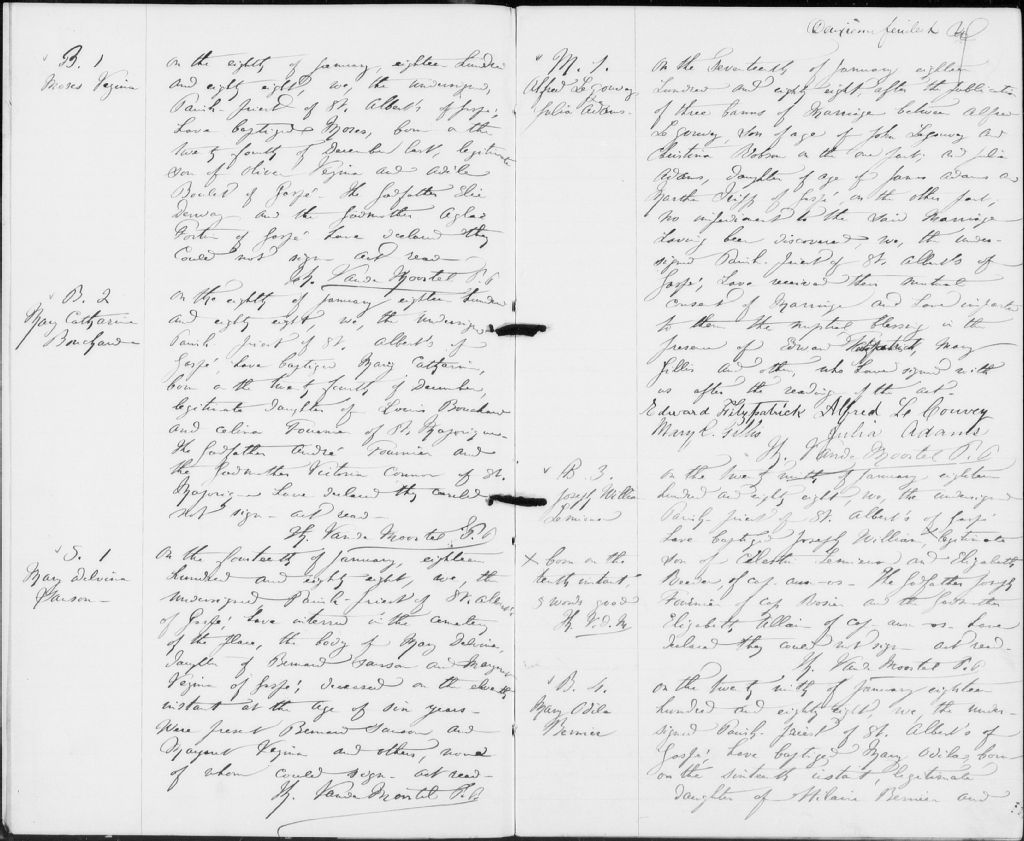 B. 1
Moses Vezina
on the eighty of January, eighteen hundred
and eighty eight, we, the undersigned,
Parish-priest of St. Albert's of Gaspé,
have baptized Moses, born on the
twenty fourth of December last, legitimate
son of Oliver Vezina and Adèle
of Gaspé. The godfather Elie
and the godmother Aglaé
Fortin of Gaspé have declared they
could not sign. act read-
H. Vande Moortel P.P.
B. 2
Mary Catharine
Bouchard
on the eighty of January eighteen hundred
and eighty eight, we, the undersigned
Parish priest of St. Albert's of
Gaspé, have baptized Mary Catharine,
born on the twenty fourth of December,
legitimate daughter of Louis Bouchard
and Celina Fournier of St. Majorique.
The godfather André Fournier and
the godmother Victoria Connor of St.
Majorique have declared they could
not sign - act read-
H. Vande Moortel P.P.
S. 1
Mary Delvina
Samson-
On the fourteenth of January, eighteen
hundred and eighty eight, we, the
undersigned Parish-priest of St. Albert's
of Gaspé, have interred in the cemetery
of the place, the body of Mary Delvina,
daughter of Bernard Samson and Margaret
Vezina of Gaspé, deceased on the eleventh
instant at the age of six years-
Were present Bernard Samson and
Margaret Vezina and others, none
of whom could sign- act read-
H. Vande Moortel P.P.
feuillet
M. 1.
Alfred Legouvey
&
Julia Adams.
On the seventeenth of January eighteen
hundred and eighty eight, after the publication
of three banns of Marriage between Alfred
Le Gouvey, son of age of John Legouvey and
Christina on the one part; and Julia
Adams, daughter of age of James Adams and
Martha of Gaspé, on the other part;
no impediment to the said marriage
having been discovered, we, the under-
signed Parish-priest of St. Albert's of
Gaspé, have received their mutual
consent of Marriage and have imparted
to them the nuptial blessing in the
presence of Edward Fitzpatrick, Mary
Gillis and others, who have signed with
us after the reading of the act-
Edward Fitzpatrick Alfred Le Couvey
Mary C. Gillis Julia Adams
H. Vande Moortel P.P.
B. 3.
Joseph William
Lemieux
on the twenty ninth of January eighteen
hundred and eighty eight, we, the undersigned
Parish-priest of St. Albert's of Gaspé
have baptized Joseph William, x legitimate
son of Celestin Lemieux and Elizabeth
of cap-aux-os- The godfather Joseph
Fournier of cap Rosier and the godmother
Elizabeth Allain of cap-aux-os- have
declared they could not sign- act read-
H. Vande Moortel P.P.
x born on the
tenth instant,
5 words good
H. V.d.M
B. 4.
Mary Odila
Bernier
on the twenty ninth of January eighteen
hundred and eighty eight, we, the under-
signed Parish-priest of St. Albert's of
Gaspé, have baptized Mary Odila, born
on the sixteenth instant, legitimate
daughter of Hilaire Bernier and